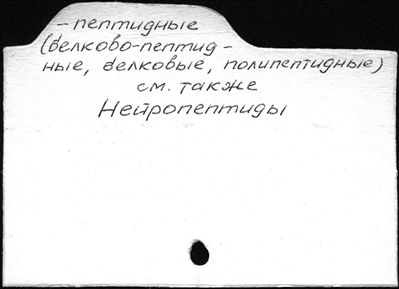 - пептидные
(белково-пептид -
ные, белковые, полипептидные)
см. также
Нейропептиды